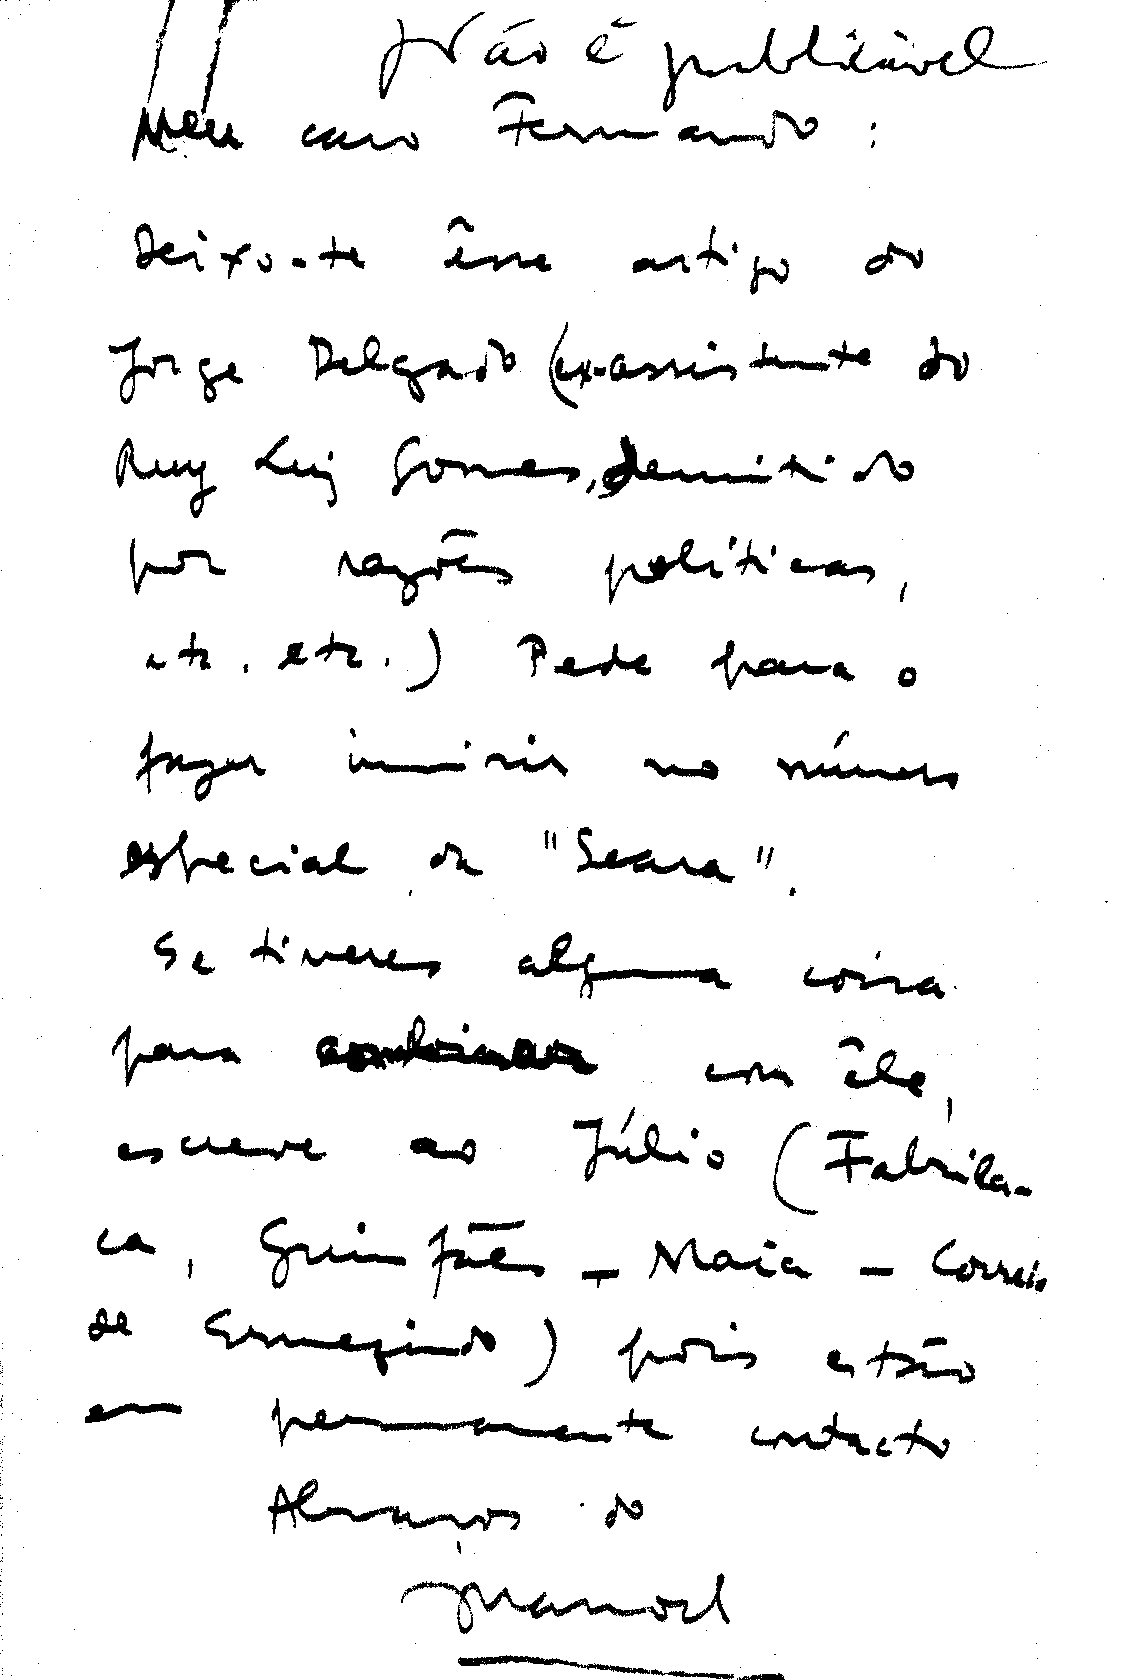 Não é publicável
Meu caro Fernando:
Deixo-te êsse artigo do
Jorge Delgado (ex-assistente do
Ruy Luiz Gomes, demitido
por razões políticas,
etc. etc.) Pede para o
fazer inserir no número
especial da "Seara".
Se tiveres alguma coisa
para combinar com êle,
escreve ao Júlio (Fabrila-
ca, Guimfães - Maia - Correio
de Ermezinde) pois estão
em permanente contacto
Abraços do
Manoel